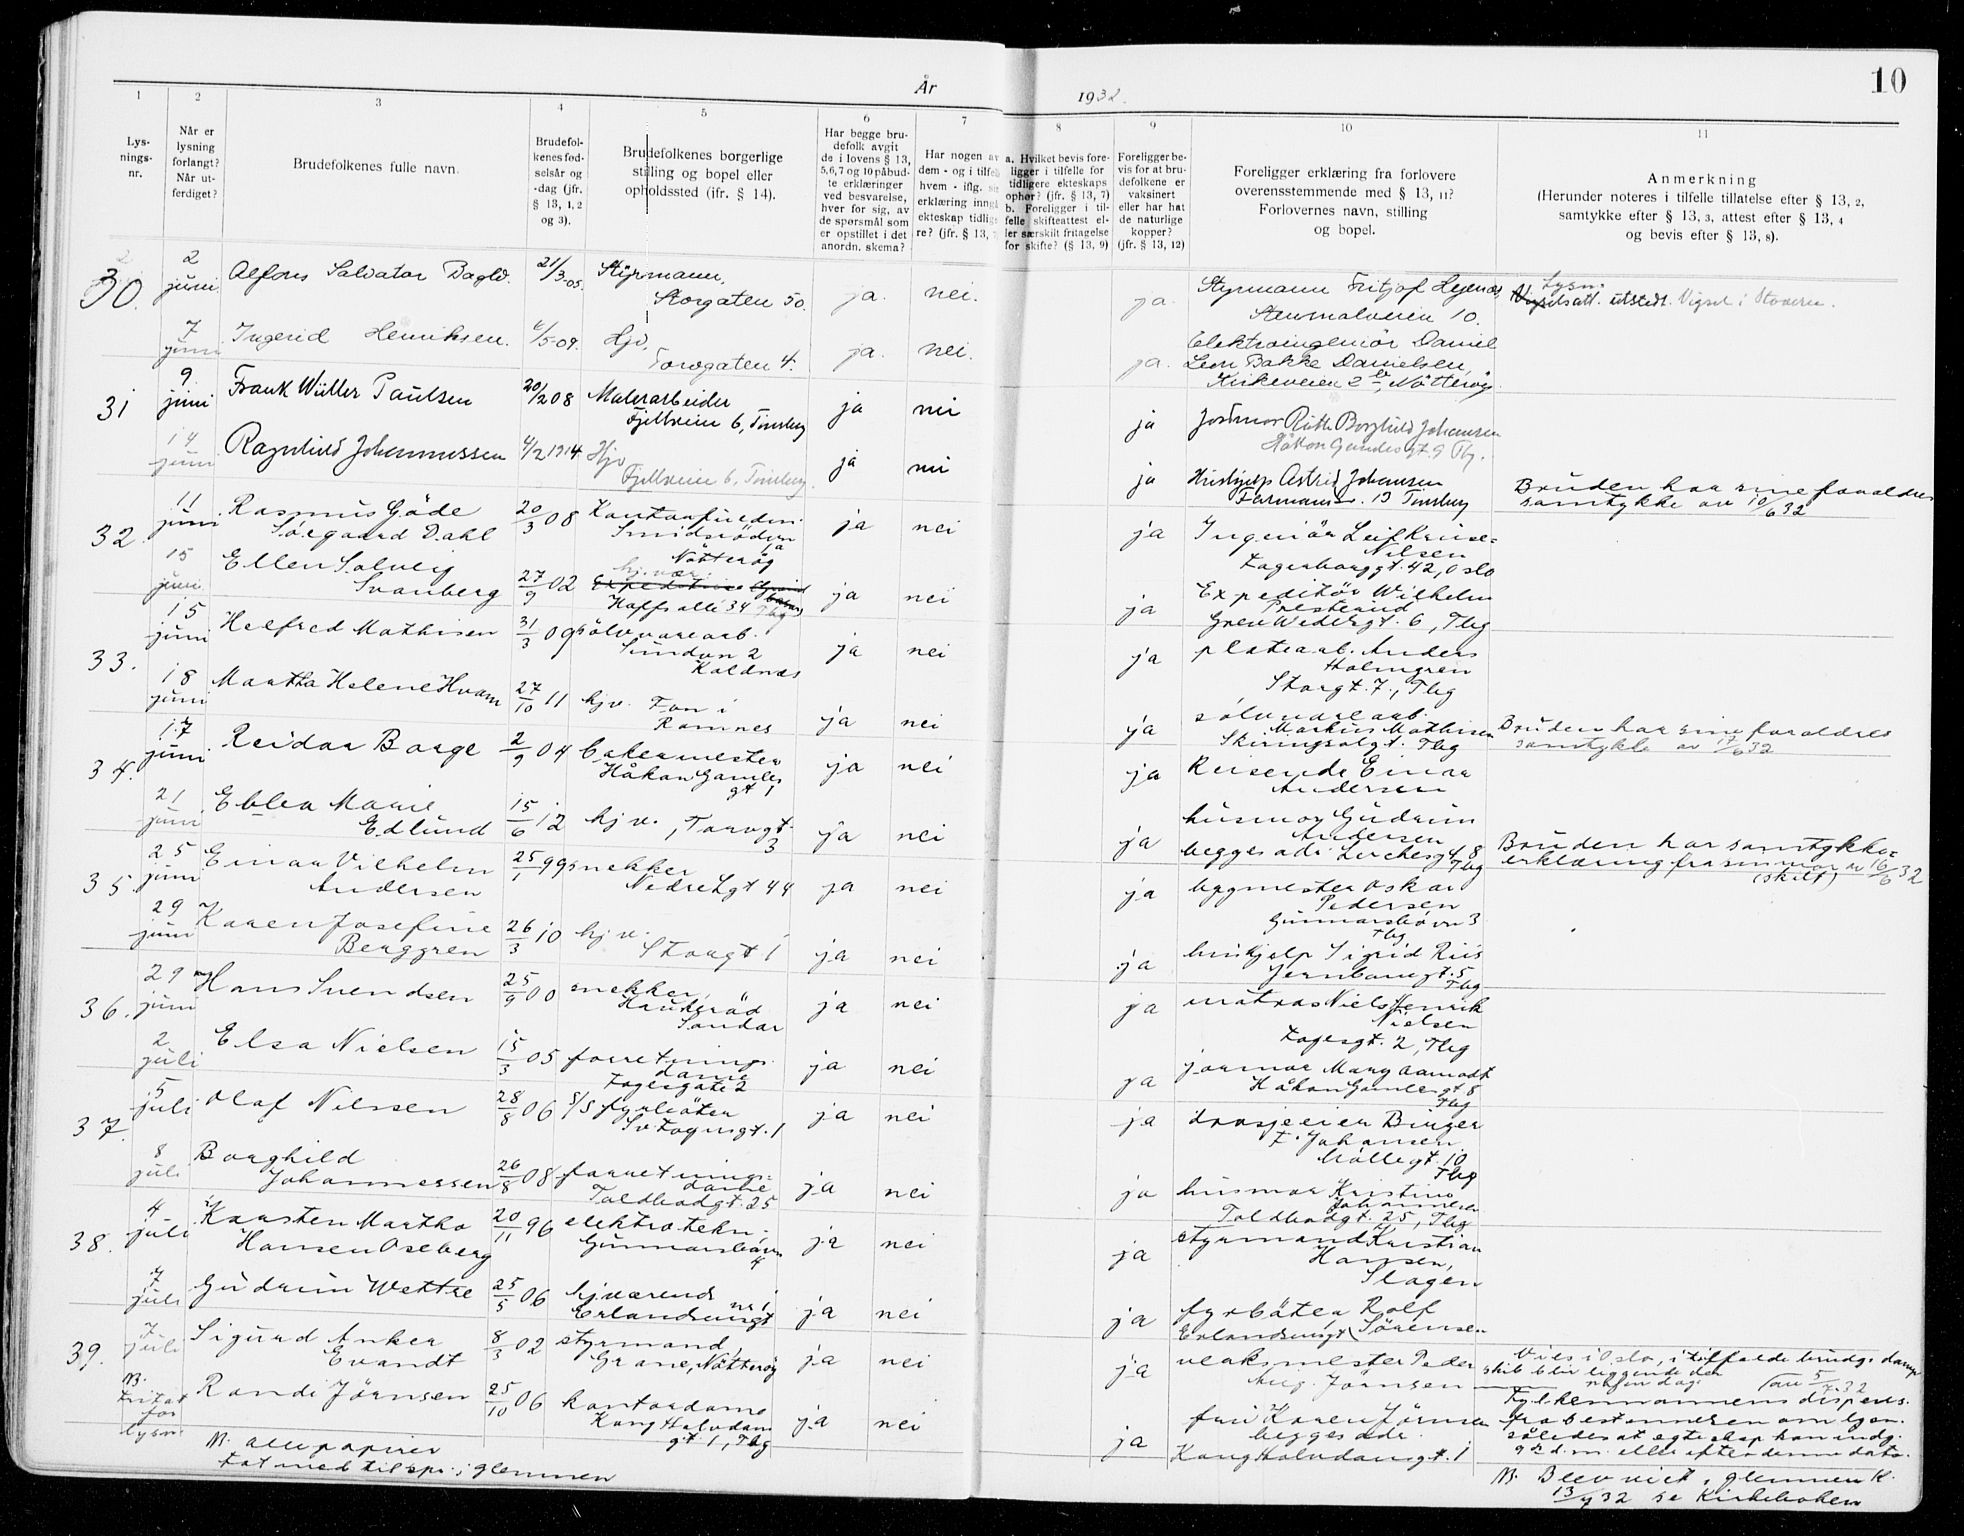 År 1932.
10
1
2
3
4
5
6
7
8
9
10
11
Lys-
nings-
nr.
Når er
lysning
forlangt?
Når ut-
ferdiget?
Brudefolkenes fulle navn.
Brudefol-
kenes fød-
selsår og
-dag (jfr.
§ 13, 1, 2
og 3).
Brudefolkenes borgerlige
stilling og bopel eller
opholdssted (ifr. § 14).
Har begge bru-
defolk avgit
de i lovens § 13,
5,6,7 og 10 påbud-
te erklæringer
ved besvarelse,
hver for sig, av
de spørsmål som
er opstillet i det
anordn. skema?
Har nogen av
dem - og i tilfelle
hvem - iflg.
erklæring inngått
ekteskap tidlige-
re? (jfr. § 13,
a. Hvilket bevis fore-
ligger i tilfelle for
tidligere ekteskaps
ophør? (jfr. § 13, 7)
b. Foreligger i til-
felle skifteattest el-
ler særskilt fritagelse
for skifte? (§ 13, 9)
Foreligger be-
vis for at bru-
defolkene er
vaksinert
eller har hat
de naturlige
kopper?
(jfr. § 13, 12)
Foreligger erklæring fra forlovere
overensstemmende med § 13, 11?
Forlovernes navn, stilling
og bopel.
Anmerkning
(Herunder noteres i tilfelle tillatelse efter § 13, 2,
samtykke efter § 13, 3, attest efter § 13, 4
og bevis efter § 13, 8).
30.
2 juni
Alfons Salvator Dagld.
21/3-05.
Styrmann,
Storgaten 50.
ja.
nei.
ja.
Styrmann Fritjof
10.
Lysn.
att. utstedt. Vigsel i Stavern.
7 juni
Ingerid Henriksen.
6/5-09.
Hjv.
Torvgaten 4.
ja.
nei.
ja.
Elektroingeniør Daniel
Leon Bakke Danielsen,
Kirkeveien 2b, Nøtterøy
31
9 juni
Frank Wüller Paulsen
20/2 08
Malerarbeider
Fjellveien 6, Tønsberg
ja
nei
ja
Jordmor Ruth Borghild Johansen
Håkon Gamles gt. 9 Tbg.
14 juni
Ragnhild Johannessen
4/2 1914
Hjv
Fjellveien 6, Tønsberg.
ja
nei
ja
Hushjelp Astrid Johansen
Farmannsv. 13 Tønsberg
Bruden har sine foreldres
samtykke av 10/6 32
32.
11 juni
Rasmus Gøde
Sørgaard Dahl
20/3 08
Kontorfuldm.
Smidsrødvn
1a
Nøtterøy
ja
nei
ja
Ingeniør Leif Kruse-
Nilsen
Fagerborggt. 42, Oslo
15 juni
Ellen Solveig
Svanberg
27/9 02
hj.vær.
Hoffs alle 34 Tbg
ja
nei
ja
Expeditør Wilhelm
Presterud
Grev Wedelsgt. 6, Tbg
33.
15 juni
Helfred Mathisen
31/3 09
sølvvarearb.
Sundvn 2
Kaldnes
ja
nei
ja
platearb. Anders
Holmgren
Storgt. 7., Tbg
18 juni
Martha Helene Hvam
27/10 11
hjv. Fon i
Ramnes
ja
nei
ja
sølvvarearb.
Markus Mathisen
Skiringsalgt. Tbg
Bruden har sine foreldres
samtykke av 17/6 32
34.
17 juni
Reidar Borge
2/9 04
bakermester
Håkon Gamles
gt 1
ja
nei
ja
Reisende Einar
Andersen
21 juni
Ebba Marie
Edlund
15/6 12
hjv., Torvgt.
3
ja
nei
ja
husmor Gudrun
Andersen
begges adr Lerchesgt 8
Tbg
Bruden har samtykke-
erklæring fra sin mor av 16/6 32
(skilt)
35.
25 juni
Einar Vilhelm
Andersen
25/1 99
snekker
Nedre Lgt 44
ja
nei
ja
bygmester Oskar
Pedersen
Gunnarsbøvn 3
Tbg
29 juni
Karen Josefine
Berggren
26/3 10
hjv.
Storgt 1
ja
nei
ja
hushjelp Sigrid Riis
Jernbanegt. 5
Tbg
36.
29 juni
Hans Svendsen
25/9 00
snekker,
Haukerød
Sandar
ja
nei
ja
matros Niels Henrik
Nielsen
Fayesgt. 2, Tbg
2 juli
Elsa Nielsen
15/3 05
forretnings-
dame
Fayesgate 2
ja
nei
ja
jormor Mary Aamodt
Håkon Gamlesgt 8
Tbg
37.
5 juli
Olaf Nilssen
28/8 06
s/s fyrbøter
Sv. Foynsgt. 1
ja
nei
ja
drosjeeier Birger
F. Johansen
Møllegt. 10
Tbg
8 juli
Borghild
Johannessen
26/8 08
forretnings-
dame
Toldbodgt. 25
ja
nei
ja
husmor Kristine
Johannesen
Toldbodgt. 25, Tbg
38.
4 juli
Karsten Martho
Hansen Oseberg
20/11 96
elektrotekn.
Gunnarsbøvn
4
ja
nei
ja
styrmand Kristian
Hansen,
Slagen
7 juli
Gudrun Wettre
25/5 06
hjværende
Erlandsensgt nr 1
ja
nei
ja
fyrbøter Rolf
Erlandsensgt 1 Sørensen
39.
7 juli
Sigurd Anker
Evandt
8/3 02
styrmand,
Grane, Nøtterøy
ja
nei
ja
verksmester Peder
Aug. Jørnsen
Vies i Oslo, i tilfelde brudg. damp
skib blir liggende der
nogen dag. av 5/7-32
Fylkesmannens dispens.
fra bestemmelsen om lysn.
således at egteskap kan indg.
9 d.m. eller efter denne dato.
NB. Fritat
for
lysn.
Randi Jørnsen
25/10 06
kontordame
Kong Halvdans
gt. 1, Tbg
ja
nei
ja
fru Karen Jørnsen
begges adr.
Kong Halvdansgt. 1
NB. alle papirer
tat med til spr. i Glemmen
NB. Blev viet i Glemmen K.
13/7 32 se Kirkeboken